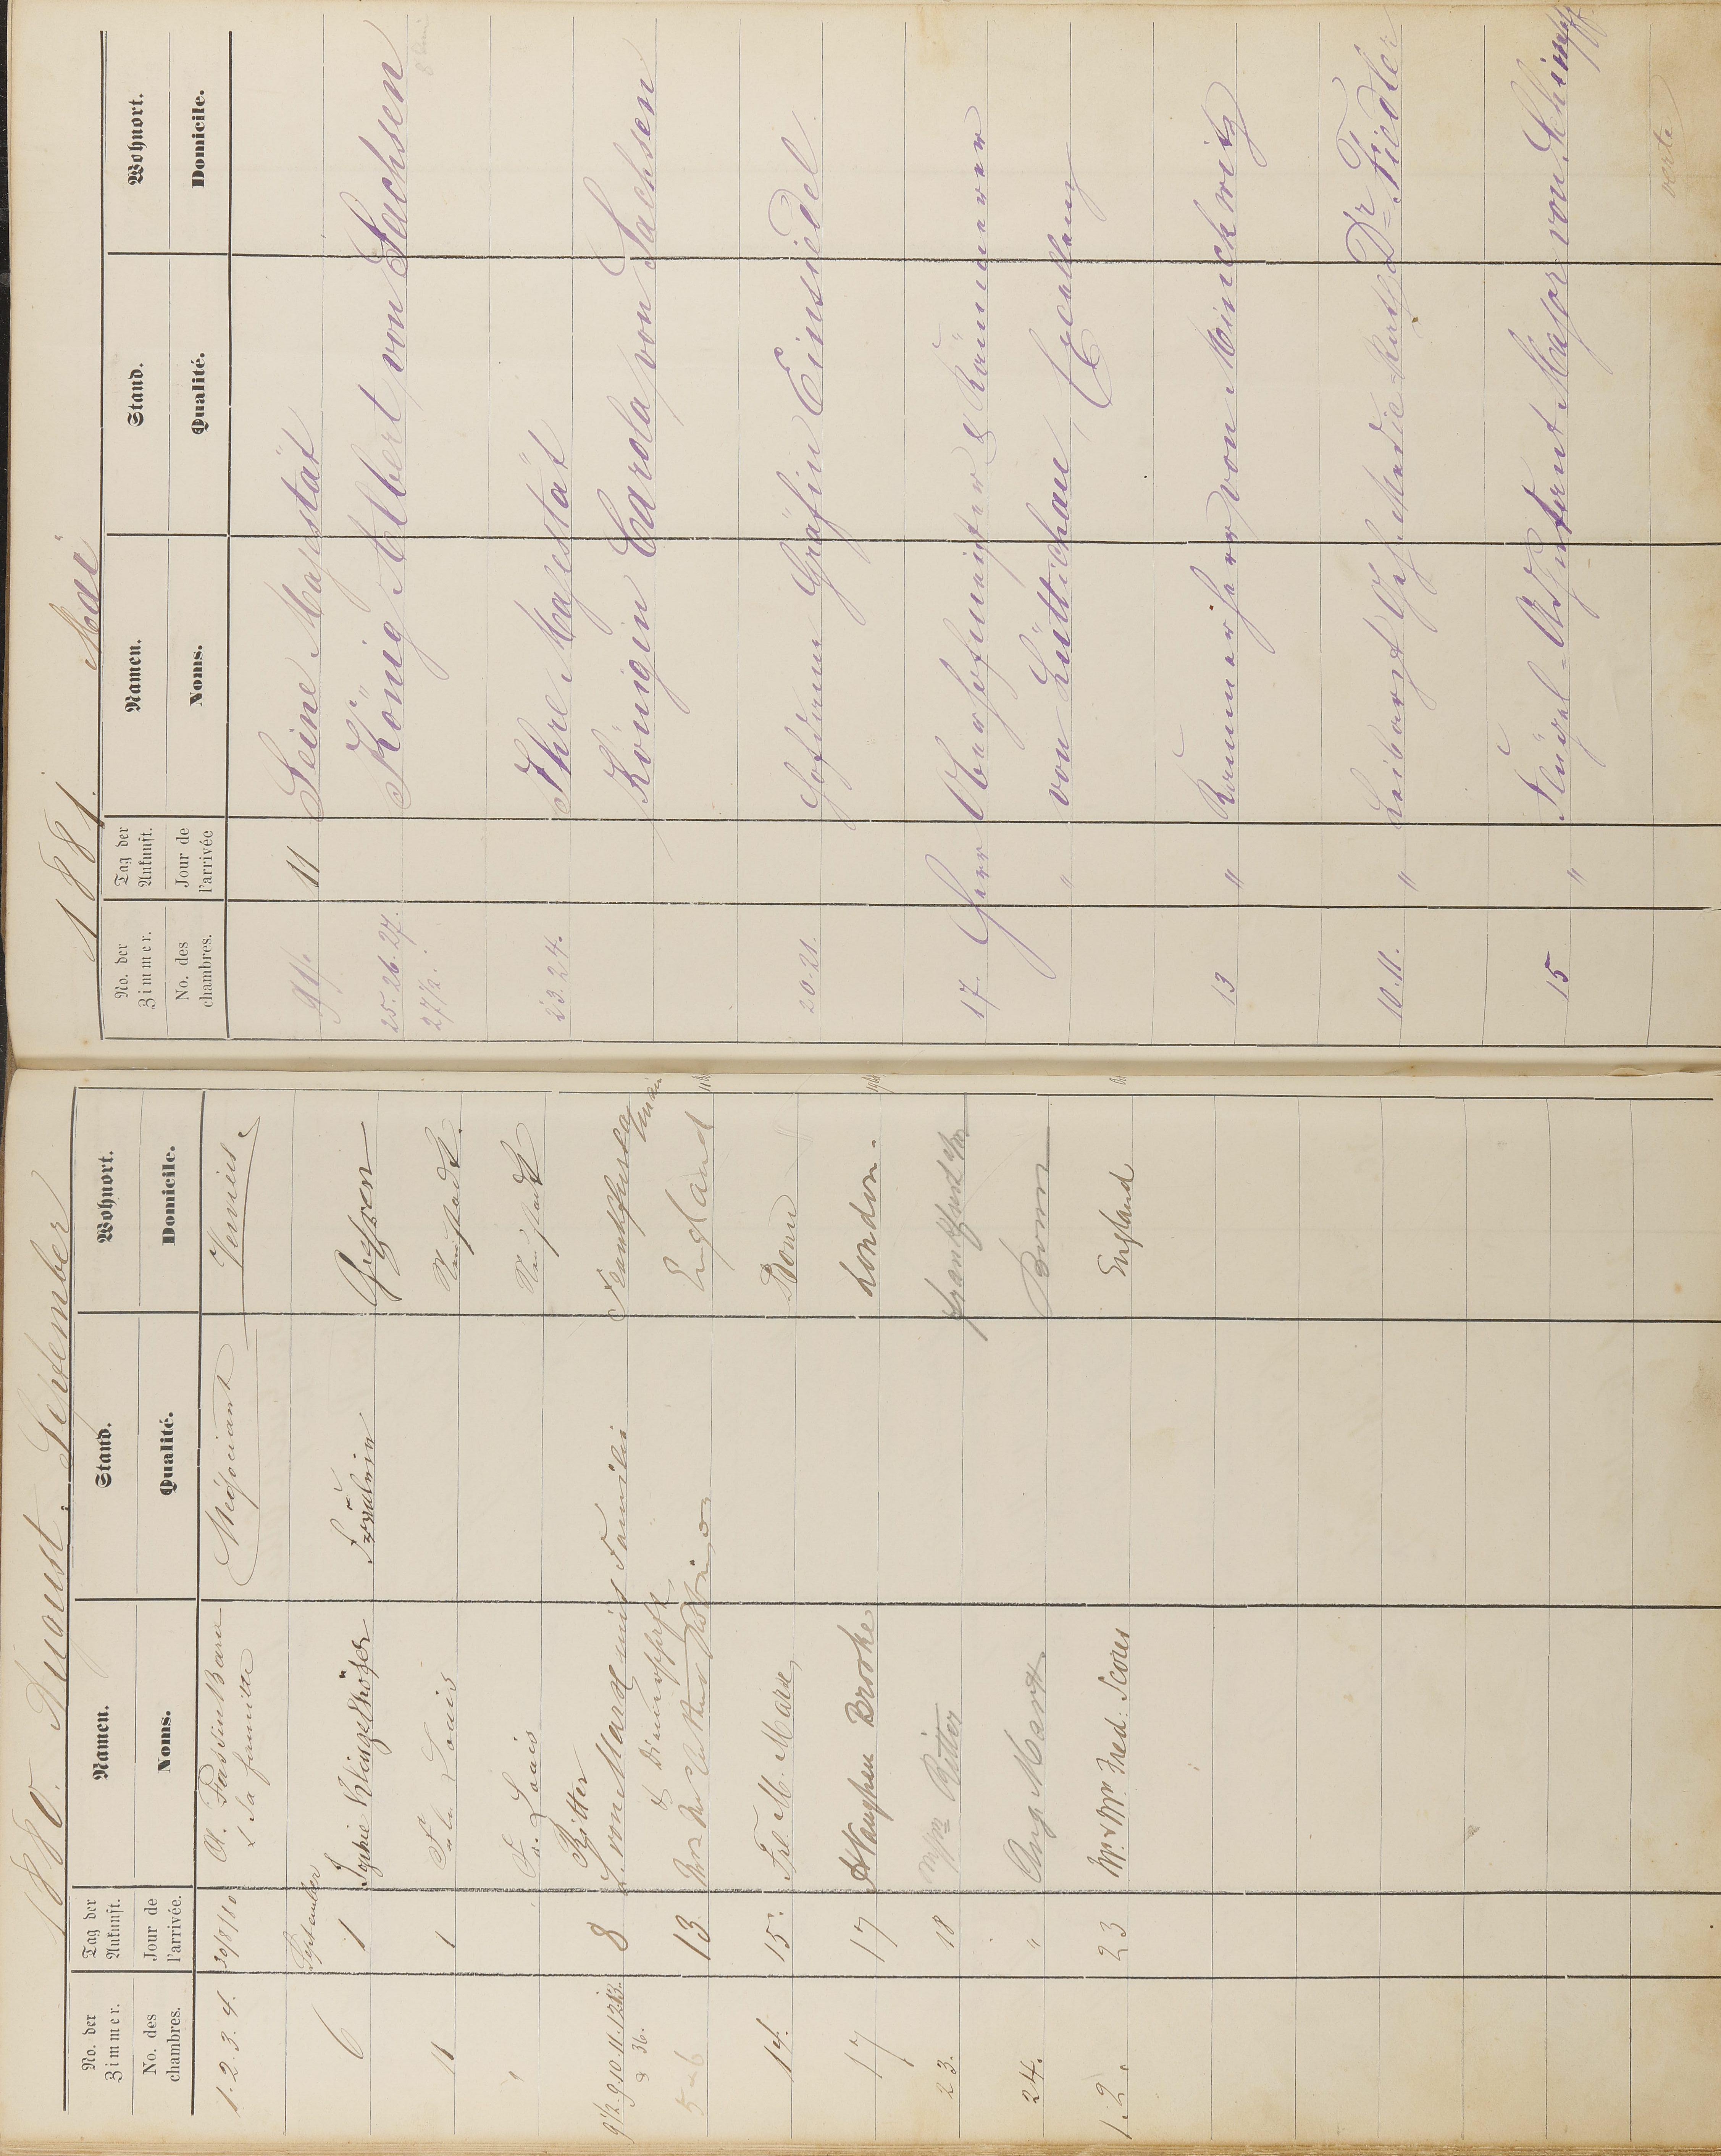 1880. August. September
No. der Zimmer. Tag der Ankunft. Namen. Stand. Wohnort.
No. des chambres. Jour de l'arrivée. Noms. Qualité. Domicile.
1. 2. 3. 4. 30/8/80 Négociant
& sa famille
September
6 1 Sophie Klingelhöfer Fräulein
11 1 Louis Neustadt.
Louis Neustadt
Ritter
9½. 9. 10. 11. 12. 13. 8 von Marx mit Familie Frankfurt a/Main
& 36. & Dienerschaft
5 6 13 England
14. 15. Fr. M. Marx Bonn
17 17 Vaughan Brooke London.
23. 18 Ritter Frankfurt a/M
24. " Aug. Marx Bonn
1. 2. 23 Mr. & Mrs. Fred. Scores England
1881. Mai
No. der Zimmer. Tag der Ankunft. Namen. Stand. Wohnort.
No. des chambres. Jour de l'arrivée Noms. Qualité. Domicile.
11 Seine Majestät
25. 26. 27. König Albert von Sachsen
27½.
23. 24. Ihre Majestät
Königin Carola von Sachsen
20. 21. Hofdame Gräfin Einsiedel
17. Herr Oberhofmeister & Kämmerer
" von Lüttichau, Excellenz
13 " Kammerherr von Minckwitz
10. 11. " Leibarzt Geh. Medic. Rath Dr. Fiedler
15 " Flügel-Adjutant Major von Schimpff
verte